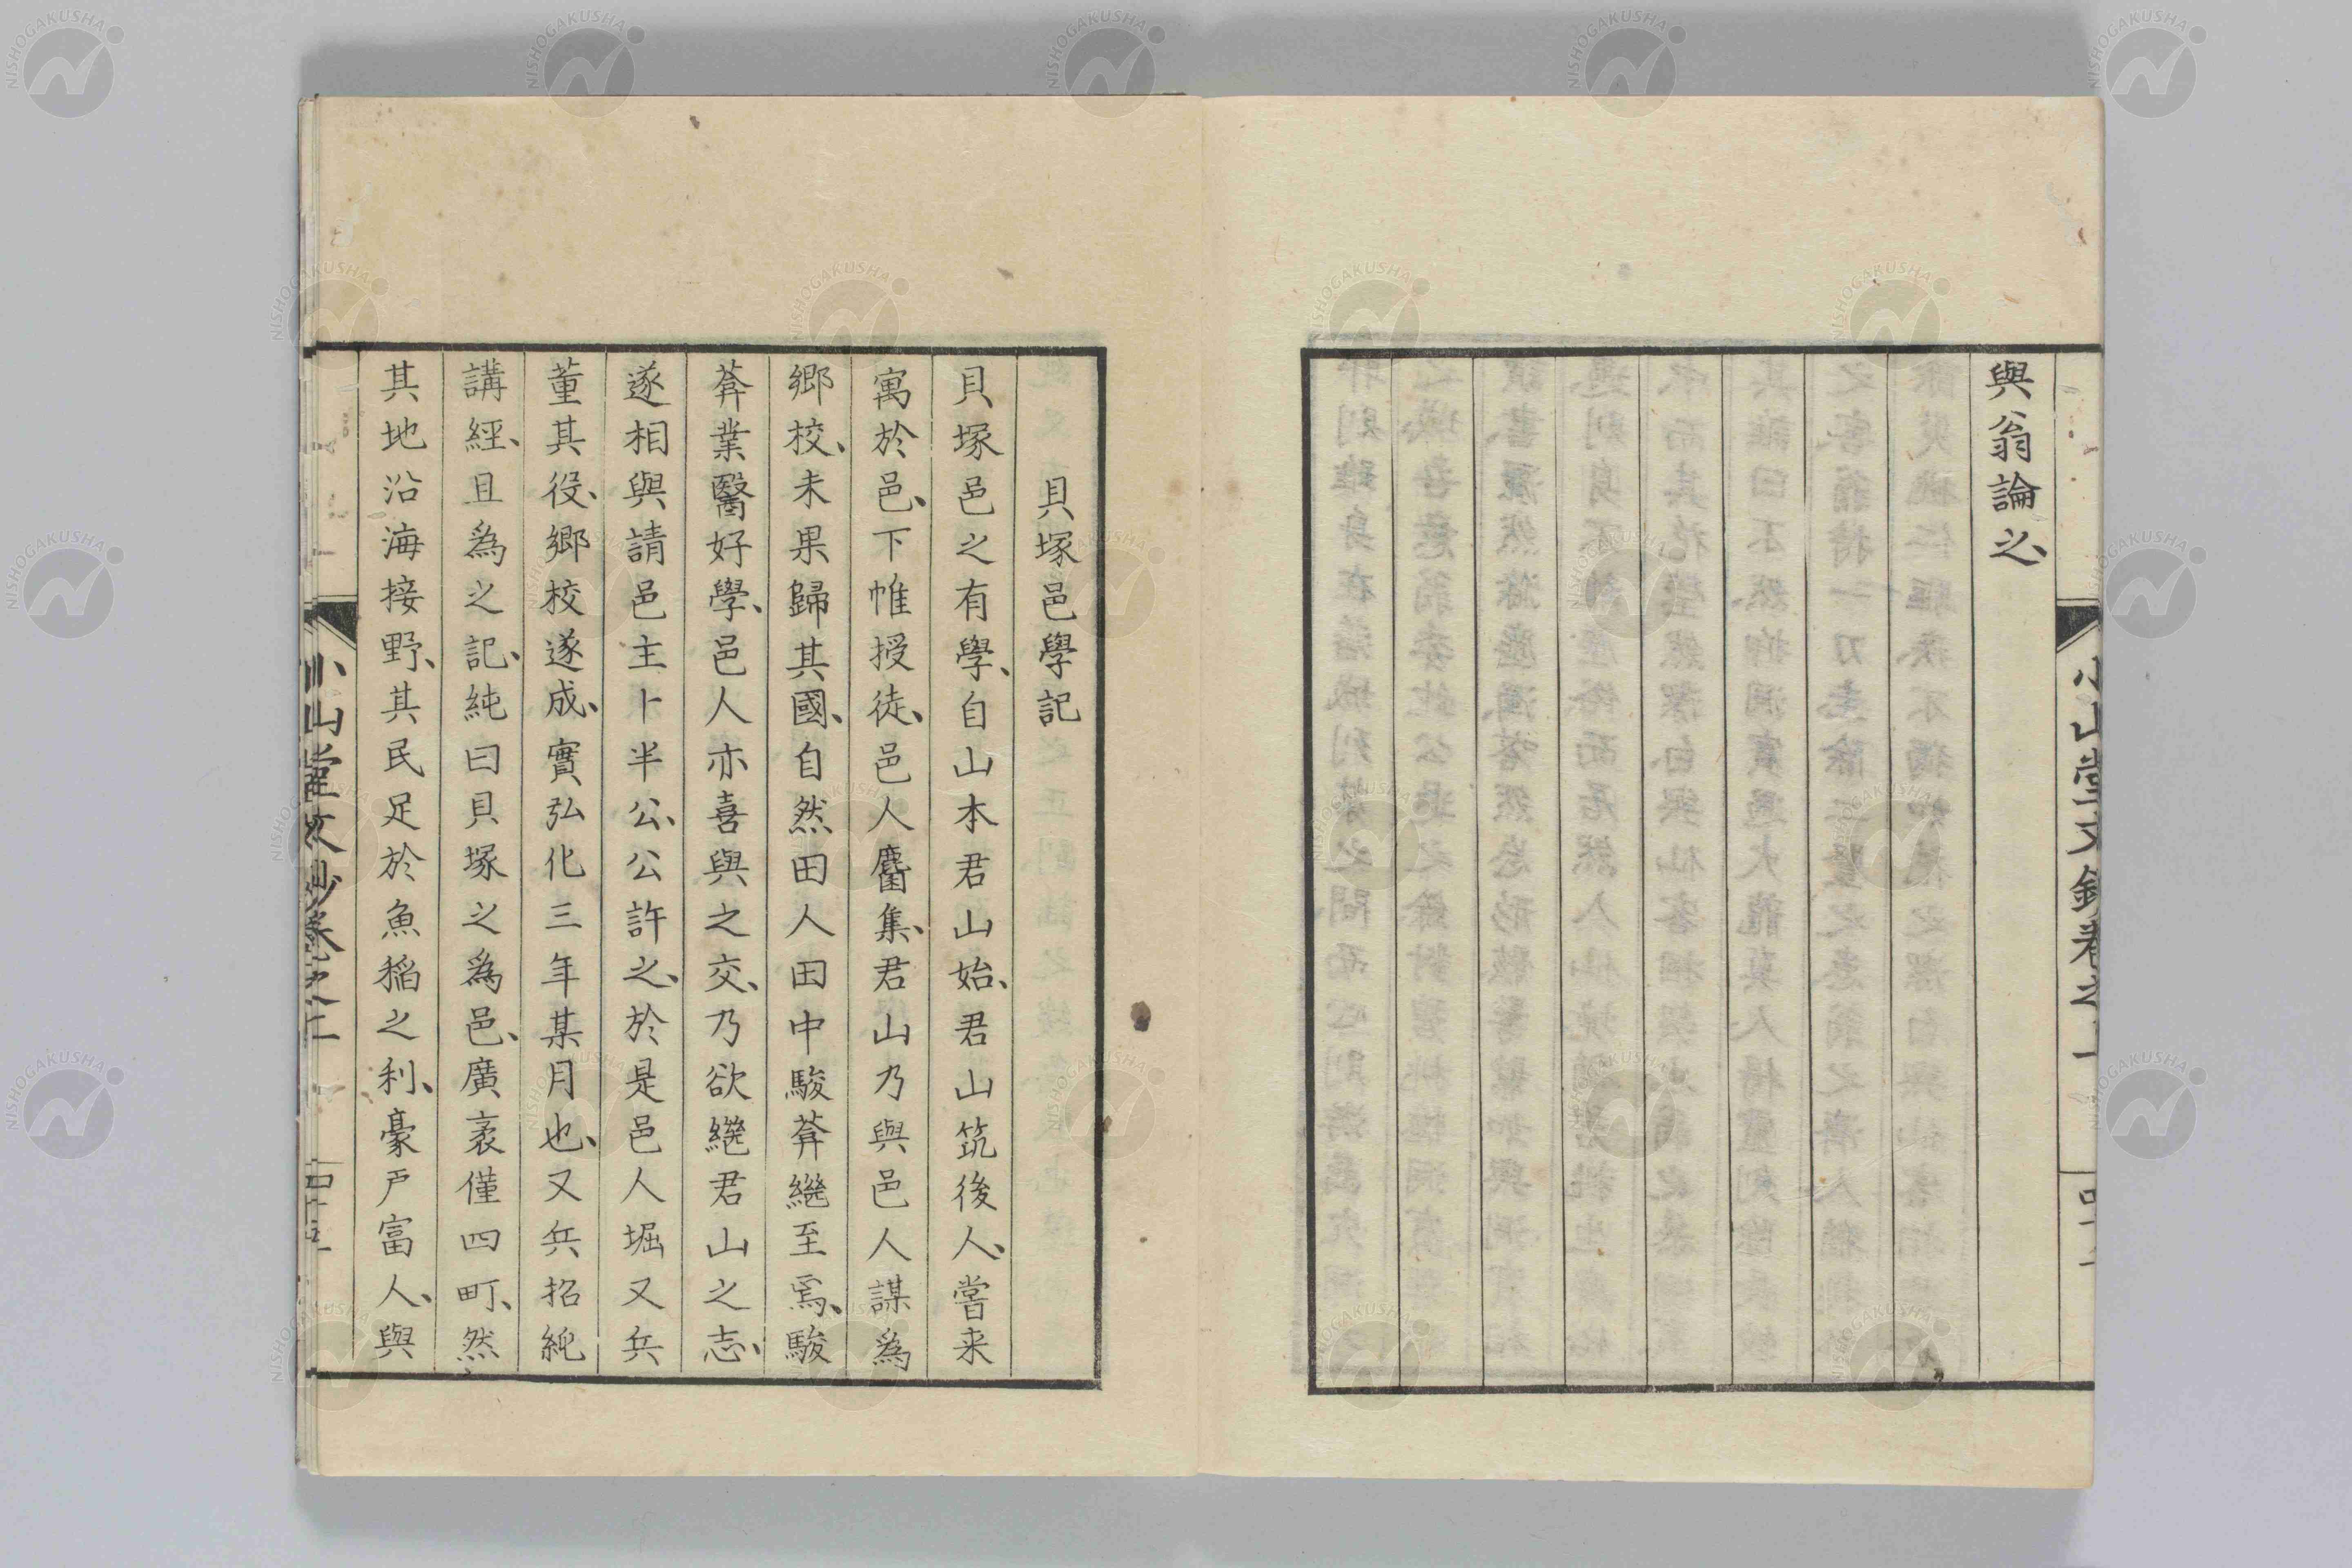 與翁論之、
貝塚邑學記
貝塚邑之有學、自山本君山始、君山筑後人、嘗来
寓於邑、下帷授徒、邑人麕集、君山乃與邑人謀為
鄉校、未果歸其國、自然田人田中駿葊繼至焉、駿
葊業醫好學、邑人亦喜與之交、乃欲繼君山之志、
遂相與請邑主卜半公、公許之、於是邑人堀又兵
董其役、鄉校遂成、實弘化三年某月也、又兵招純
講經、且為之記、純曰貝塚之為邑、廣袤僅四町、然
其地沿海接野、其民足於魚稻之利、豪戸富人、與
小山堂文鈔卷之二
四十五
NISHOGAKUSHA